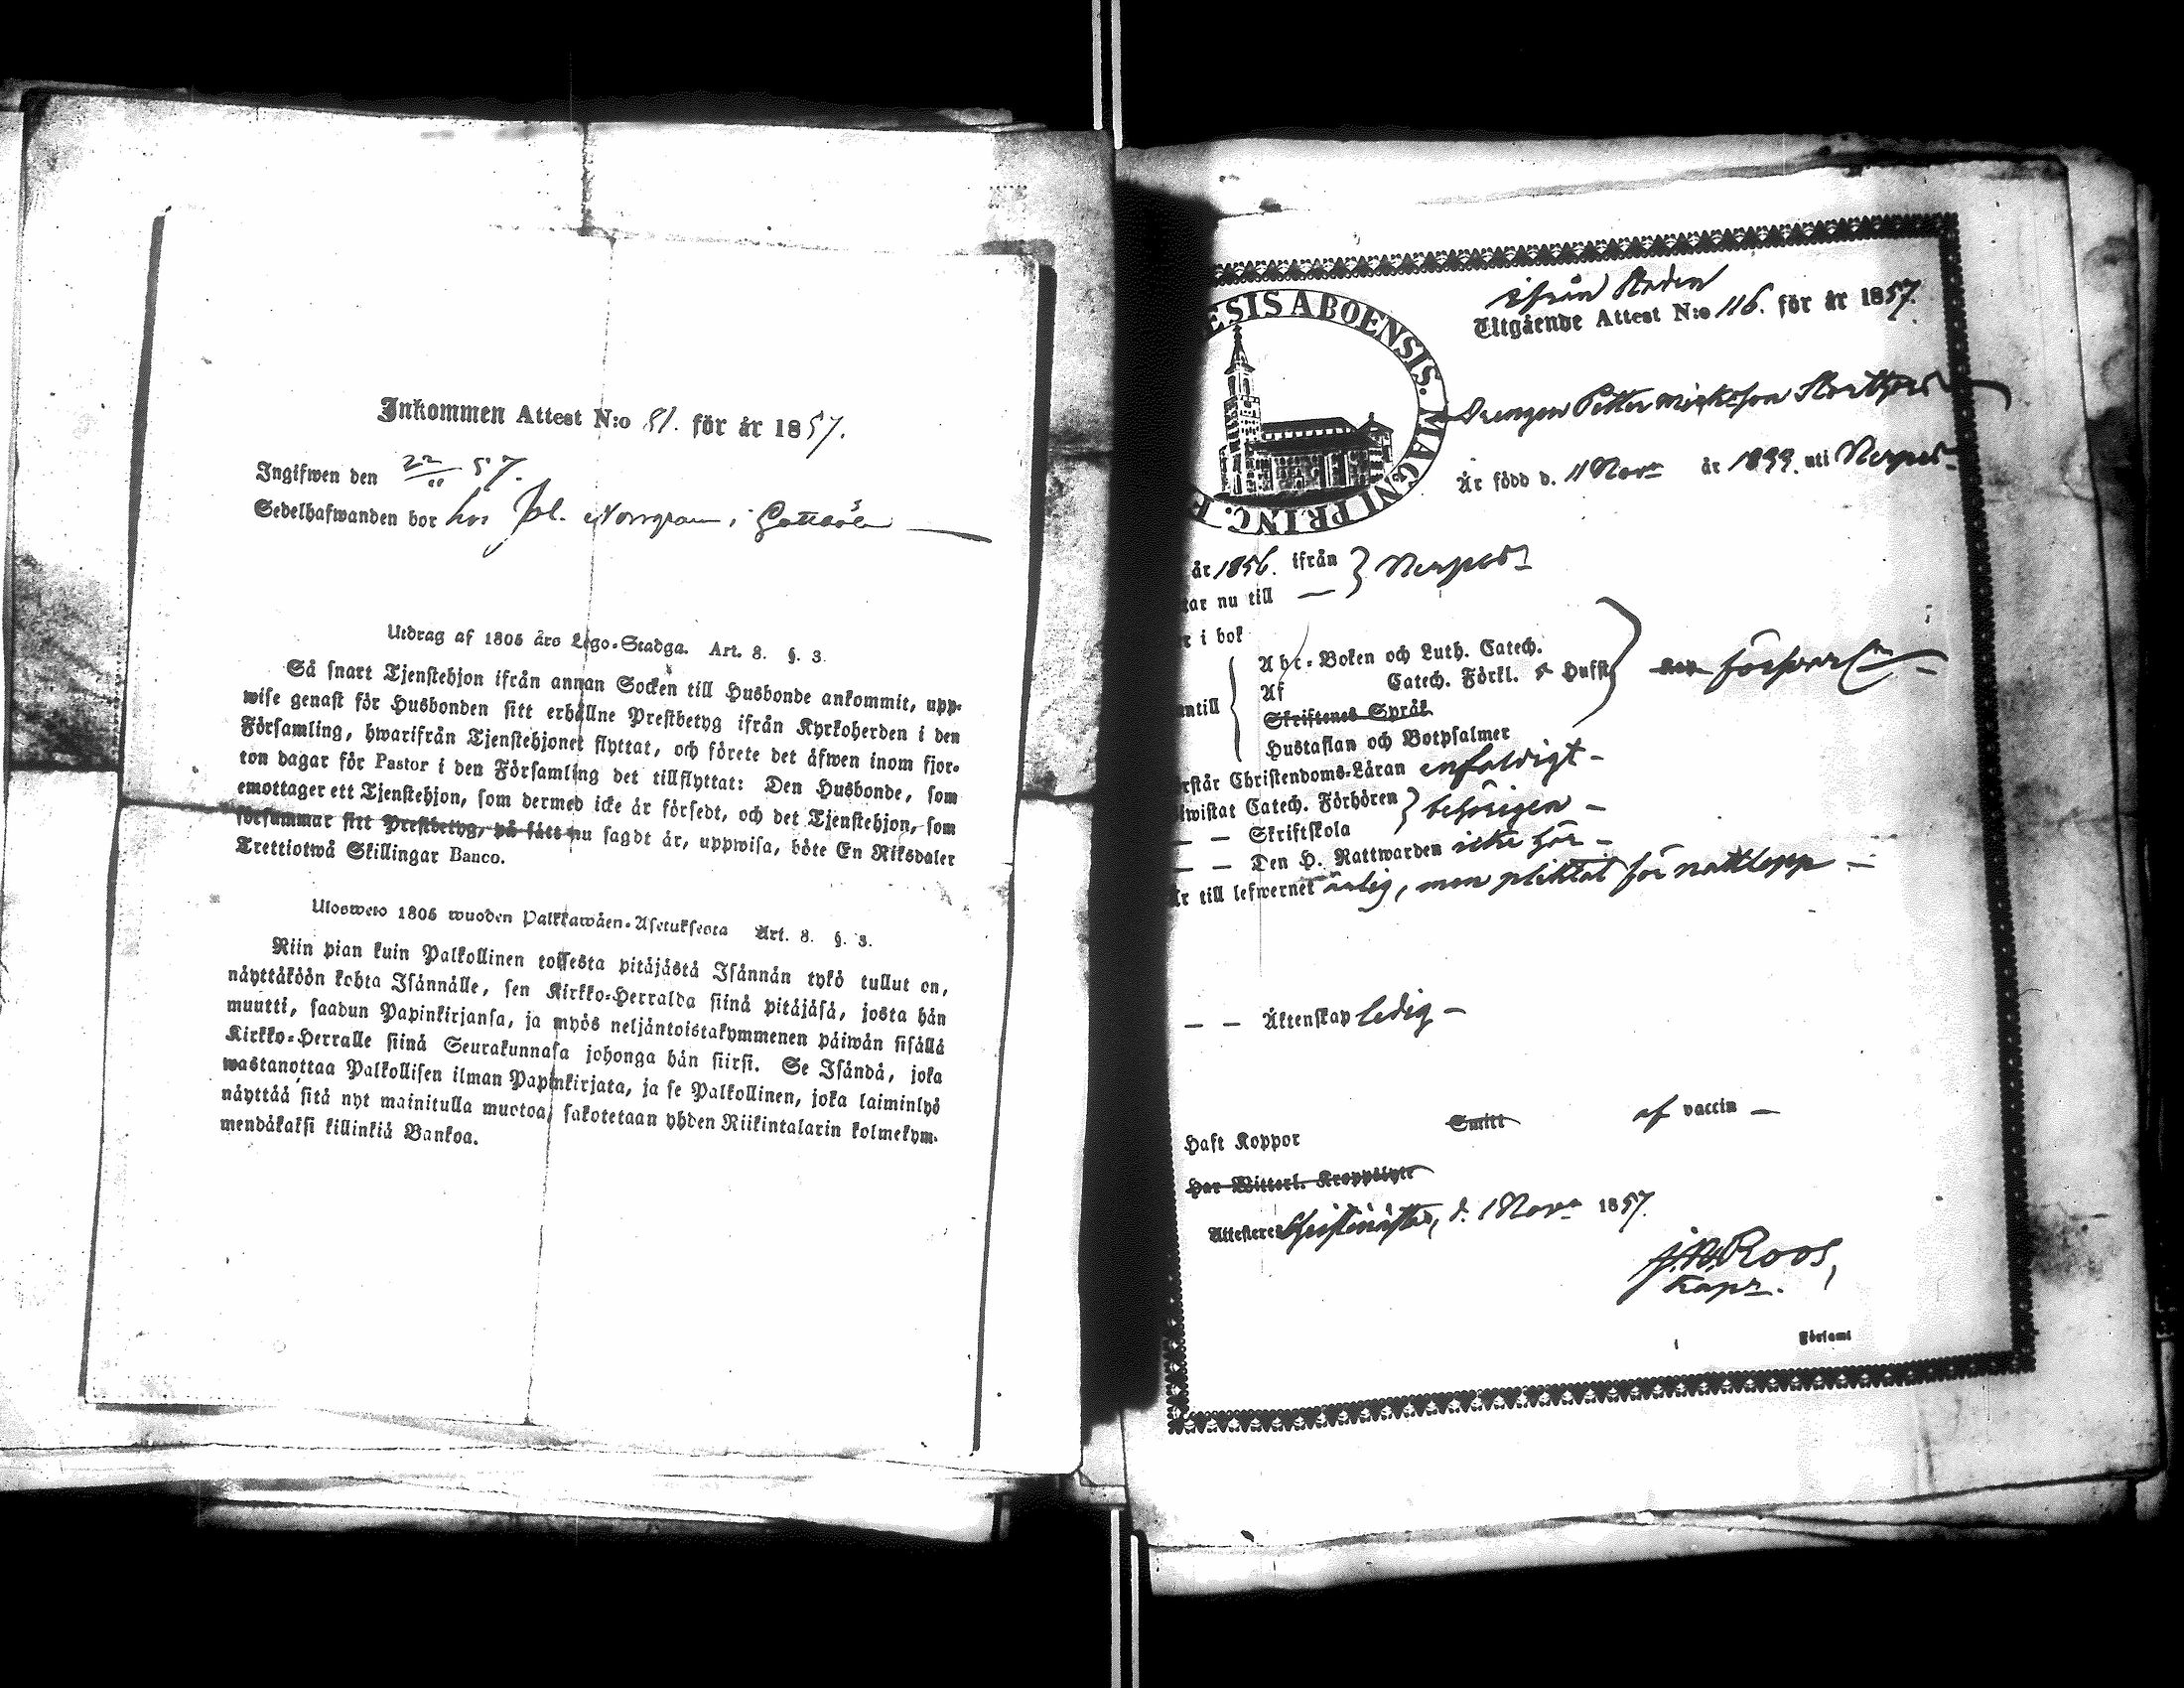 Inkommen Attest N:o 81. för år 1857.
Ingifwen den 22/11 57.
Sedelhafwanden bor hos Joh. Norrgrann i
Utdrag af 1805 års Lego-Stadga. Art. 8. §. 3.
Så snart Tjenstehjon ifrån annan Socken till Husbonde ankommit, upp-
wise genast för Husbonden sitt erhållne Prestbetyg ifrån Kyrkoherden i den
Församling, hwarifrån Tjenstehjonet flyttat, och förete det äfwen inom fjor-
ton dagar för Pastor i den Församling det tillflyttat: Den Husbonde, som
emottager ett Tjenstehjon, som dermed icke är försedt, och det Tjenstehjon, som
försummar sitt Prestbetyg, på sätt nu sagdt är, uppwisa, böte En Riksdaler
Trettiotwå Skillingar Banco.
Ulosweto 1805 wuoden Palkkawäen-Asetuksesta Art. 8. §. 3.
Niin pian kuin Palkollinen toisesta pitäjästä Isännän tykö tullut on,
näyttäköön kohta Isännälle, sen Kirkko-Herralda siinä pitäjäsä, josta hän
muutti, saadun Papinkirjansa, ja myös neljäntoistakymmenen päiwän sisällä
Kirkko-Herralle siinä Seurakunnasa johonga hän siirsi. Se Isändä, joka
wastanottaa Palkollisen ilman Papinkirjata, ja se Palkollinen, joka laiminlyö
näyttää sitä nyt mainitulla muotoa, sakotetaan yhden Riikintalarin kolmekym-
mendäkaksi killinkiä Bankoa.
ESIS ABOENSIS. MAGNI PRINC. F
ifrån Staden
Utgående Attest N:o 116. för år 1857.
Drengen Petter Mickelson
Är född d. 11 Nov. år uti Nerpes
år 1856. ifrån } Nerpes
tar nu till
r i bok
Abc-Boken och Luth. Catech.
Af Catech. Förkl. o Husst
Skriftenes Språk
ntill
Hustaflan och Botpsalmer
rstår Christendoms-Läran enfaldigt
iwistat Catech. Förhören } behörigen
— — Skriftskola
— — Den H. Nattwarden icke här
är till lefwernet ärlig, men pliktat för nattlopp
— — Äktenskap ledig
Haft Koppor Smitt af vaccin
Har Witterl. Kroppslyte
Attesterer Christinestad, d. 1 Nov. 1857.
J. W. Roos,
Kapl.
Församl